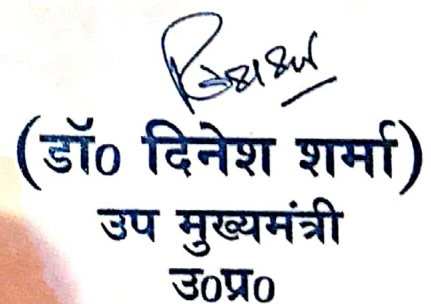 (डॉ0 दिनेश शर्मा)
उप मुख्यमंत्री
उ0प्र0